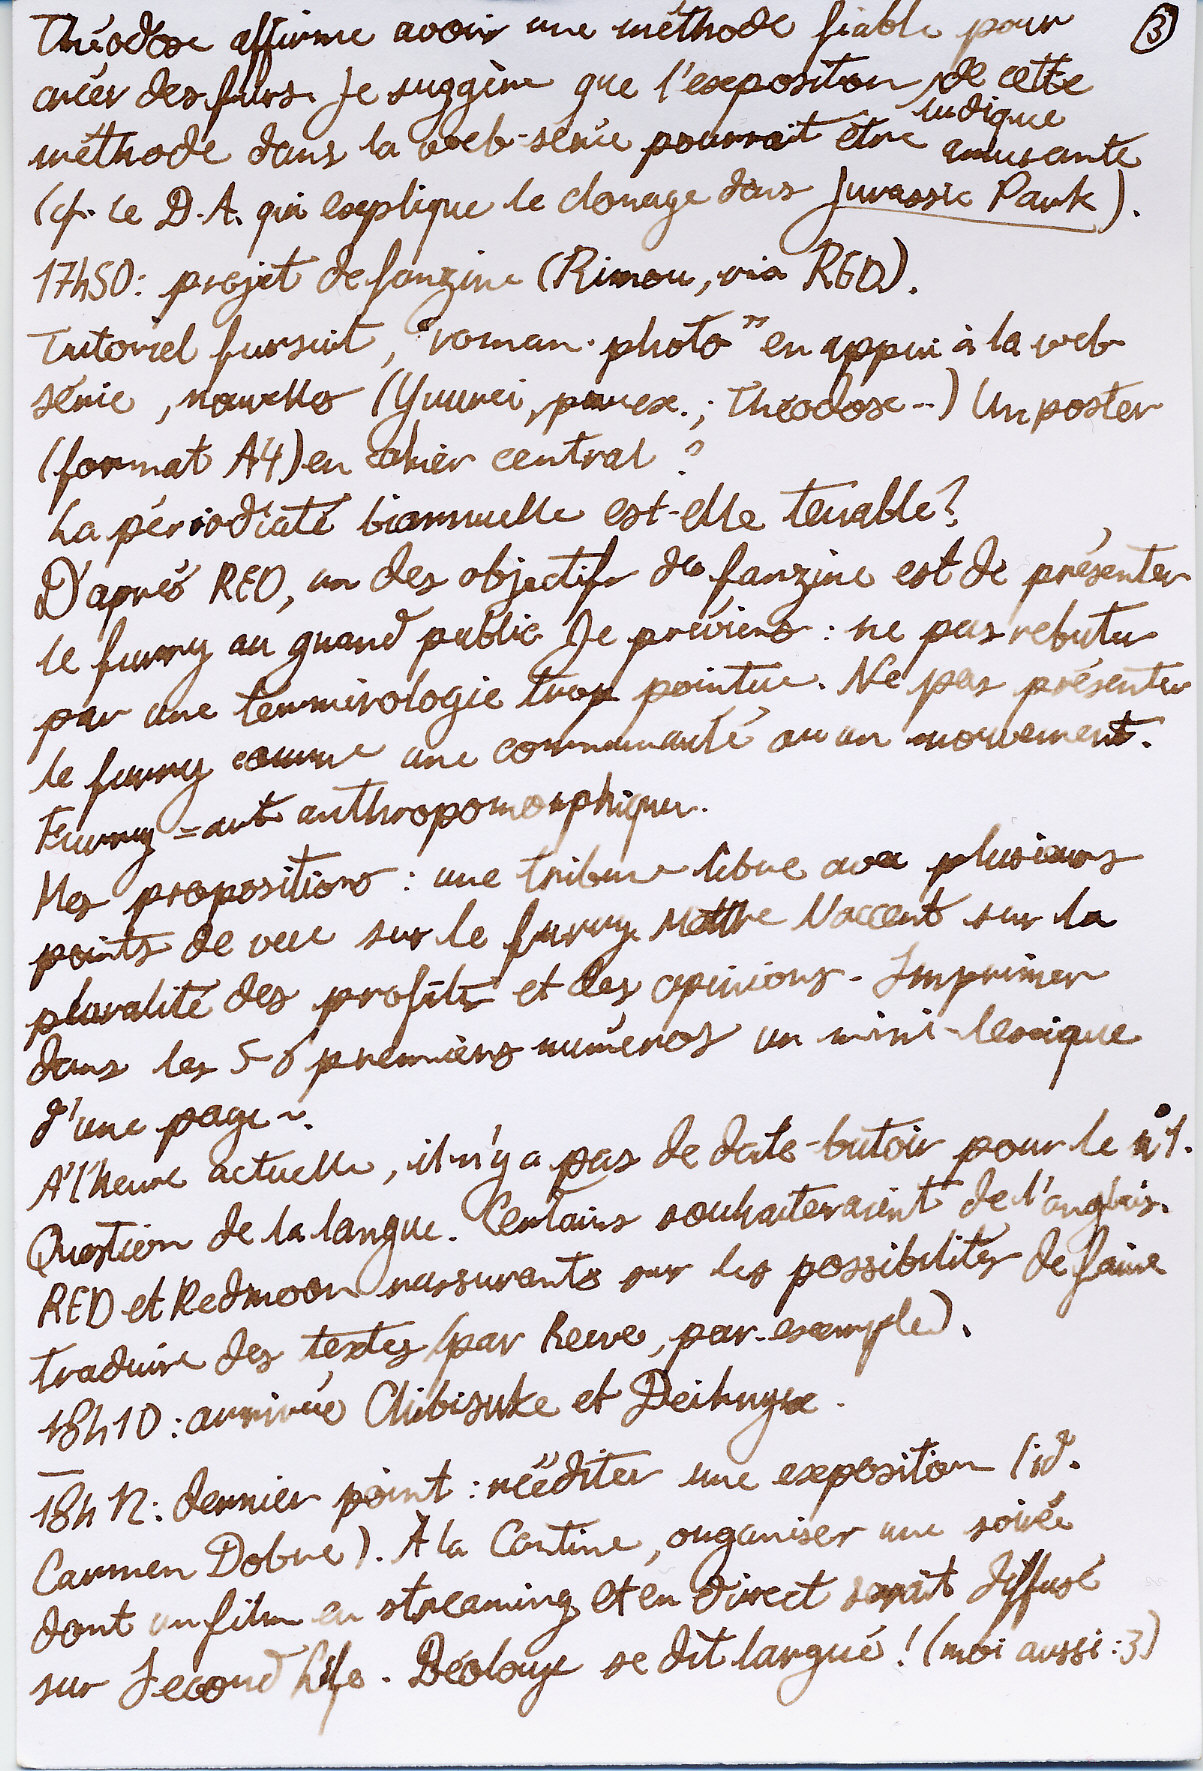 Théodose affirme avoir une méthode fiable pour
3
créer des furs. Je suggère que l'exposition de cette
ludique
méthode dans la web-série pourrait être amusante
(cf. le D.A. qui explique le clonage dans Jurassic Park).
17h50: projet de fanzine (Rimou, via RED).
Tutoriel fursuit, "roman-photo" en appui à la web
série, nouvelles (Yuurei, par ex.; Théodose...) Un poster
(format A4) en cahier central ?
La périodicité biannuelle est-elle tenable ?
D'après RED, un des objectifs du fanzine est de présenter
le furry au grand public. Je préviens : ne pas rebuter
par une terminologie trop pointue. Ne pas présenter
le furry comme une communauté ou un mouvement.
Furry = art anthropomorphique.
Mes propositions : une tribune libre avec plusieurs
points de vue sur le furry. Mettre l'accent sur la
pluralité des profils et des opinions. Imprimer
dans les 5-6 premiers numéros un mini-lexique
d'une page ~.
A l'heure actuelle, il n'y a pas de date-butoir pour le n°1.
Question de la langue. Certains souhaiteraient de l'anglais.
RED et Redmoon rassurants sur les possibilités de faire
traduire des textes (par , par exemple).
18h10 : arrivée Chibisuke et
18h12 : dernier point : rééditer une exposition (id.
Carmen Dobre). À la Cantine, organiser une soirée
dont un film en streaming et en direct serait diffusé
sur Second Life. se dit largué ! (moi aussi :3)